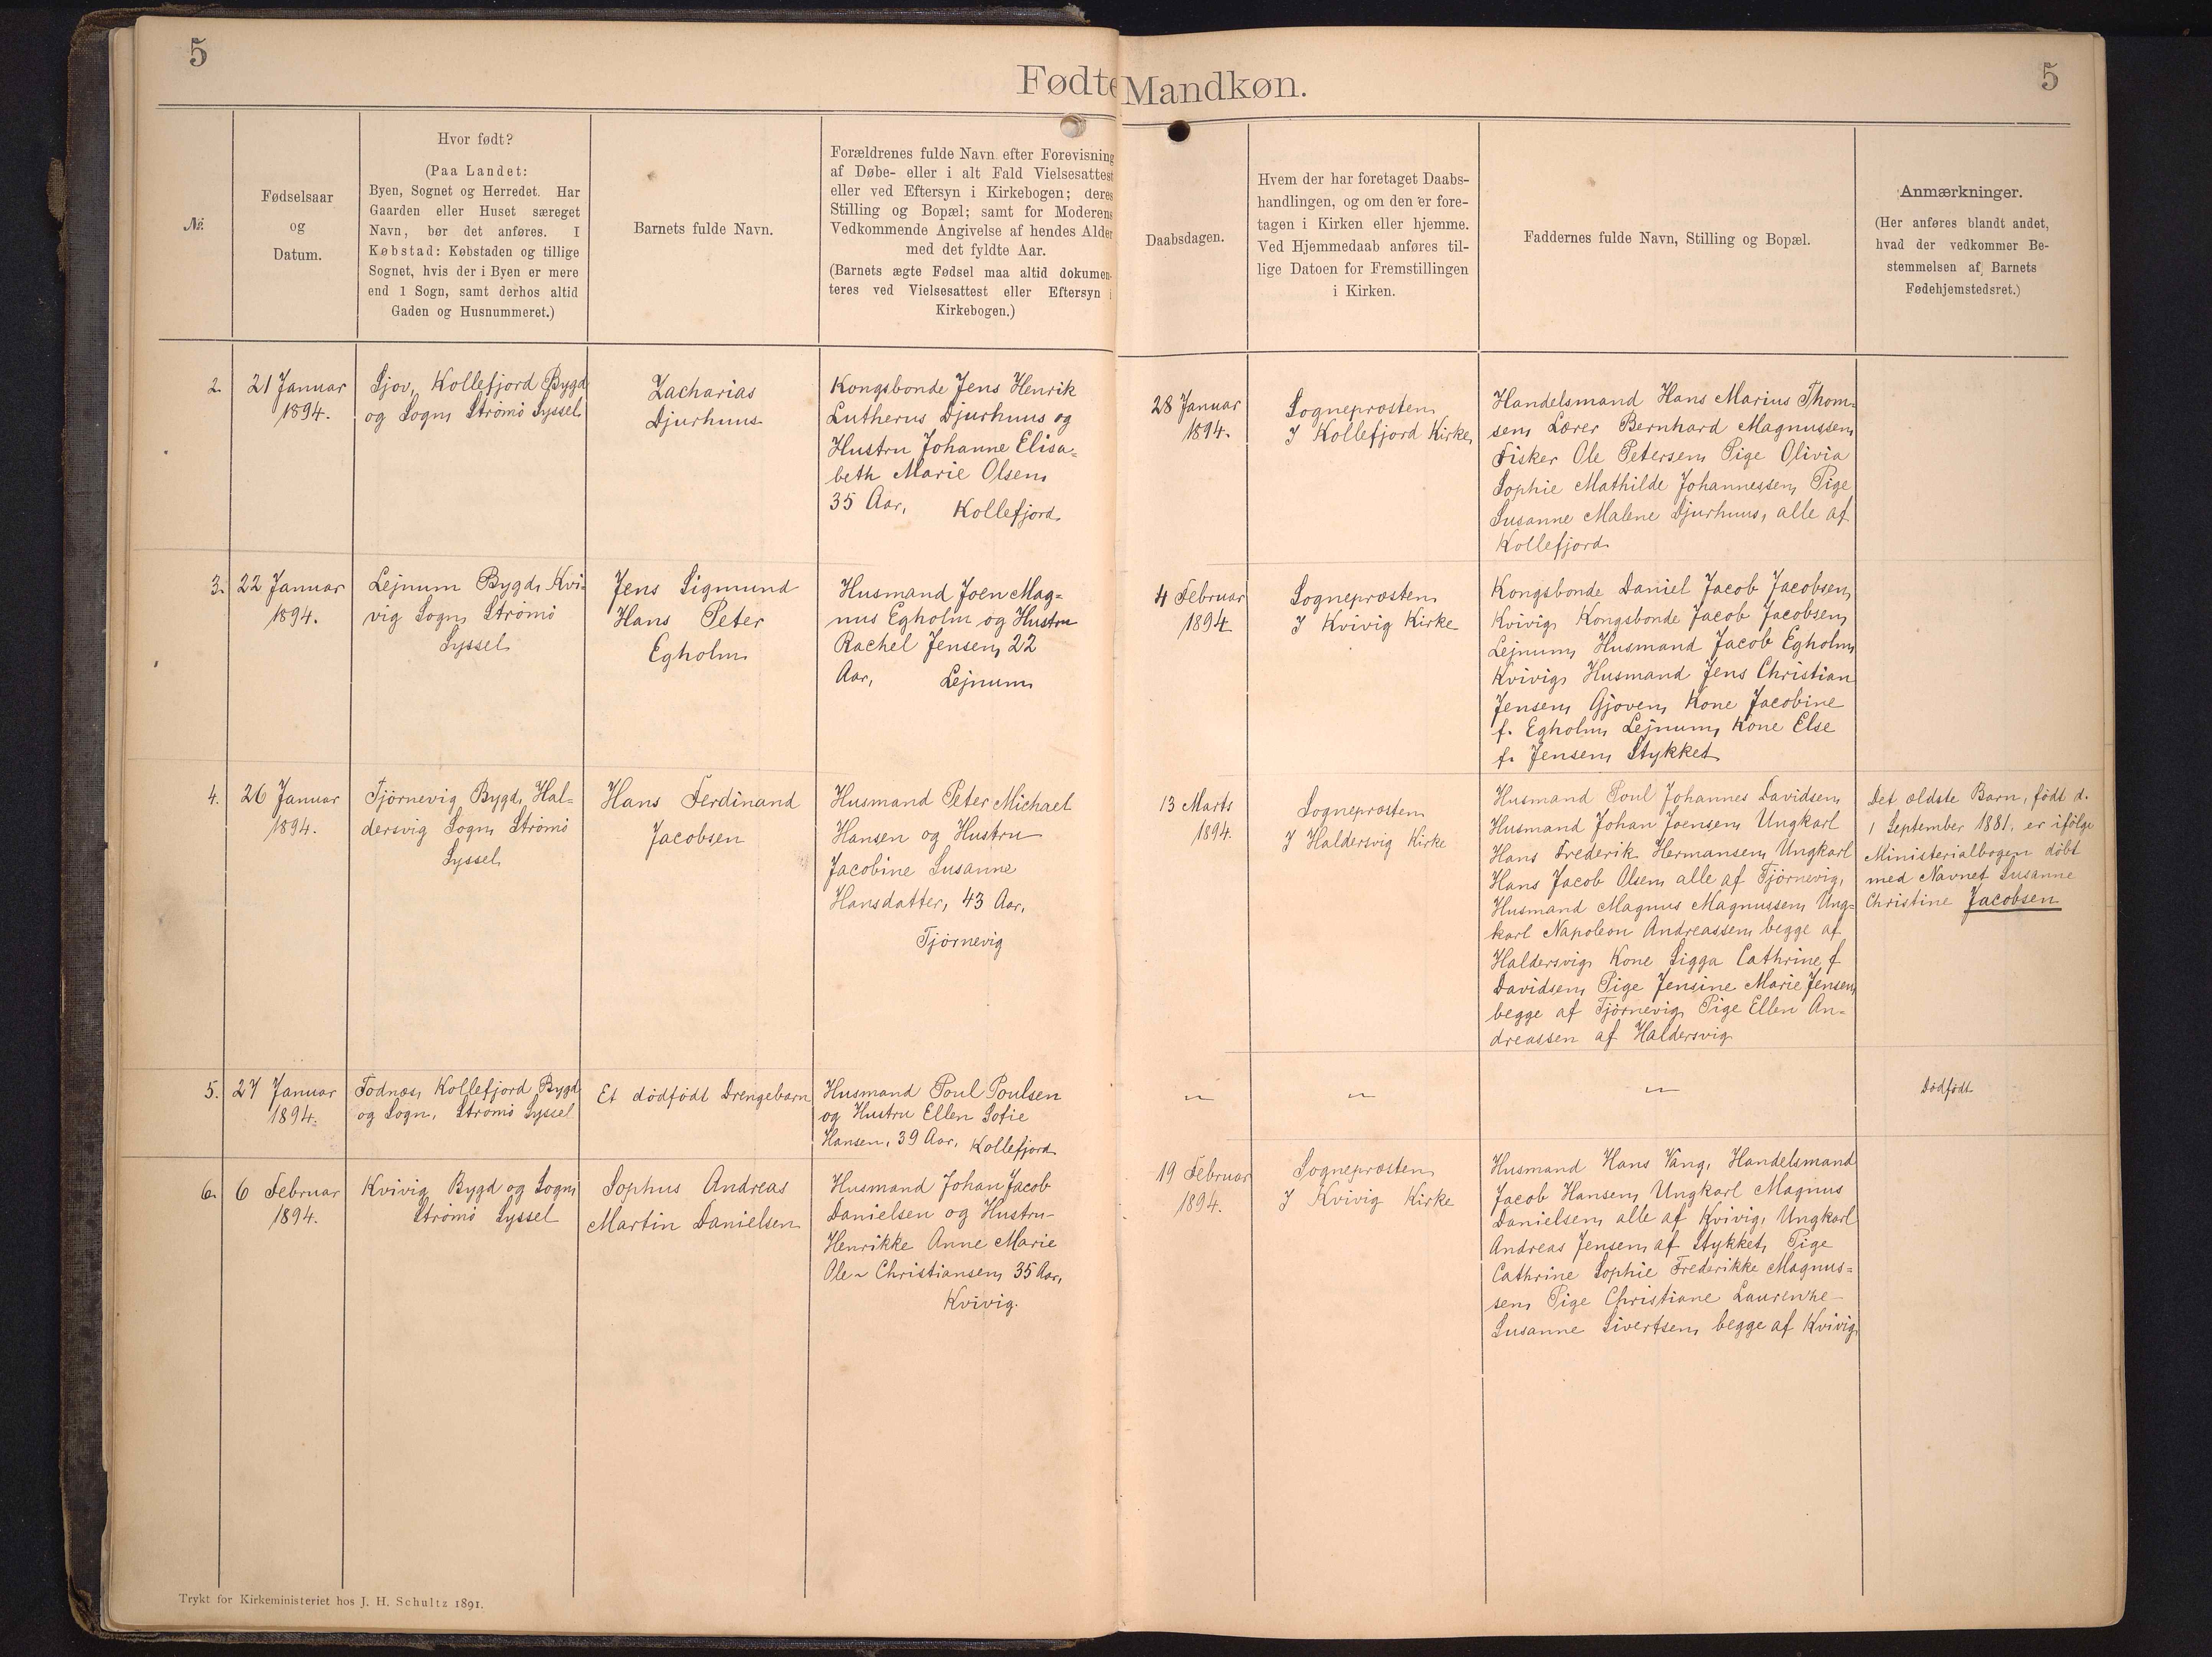 5
5
Fødte Mandkøn.
№
Fødselsaar
og
Datum.
Hvor født?
(Paa Landet:
Byen, Sognet og Herredet. Har
Gaarden eller Huset særeget
Navn, bør det anføres. I
Købstad: Købstaden og tillige
Sognet, hvis der i Byen er mere
end 1 Sogn, samt derhos altid
Gaden og Husnummeret.)
Barnets fulde Navn.
Forældrenes fulde Navn efter Forevisning
af Døbe- eller i alt Fald Vielsesattest
eller ved Eftersyn i Kirkebogen; deres
Stilling og Bopæl; samt for Moderens
Vedkommende Angivelse af hendes Alder
med det fyldte Aar.
(Barnets ægte Fødsel maa altid dokumen-
teres ved Vielsesattest eller Eftersyn i
Kirkebogen.)
Daabsdagen.
Hvem der har foretaget Daabs-
handlingen, og om den er fore-
tagen i Kirken eller hjemme.
Ved Hjemmedaab anføres til-
lige Datoen for Fremstillingen
i Kirken.
Faddernes fulde Navn, Stilling og Bopæl.
Anmærkninger.
(Her anføres blandt andet,
hvad der vedkommer Be-
stemmelsen af Barnets
Fødehjemstedsret.)
2.
21 Januar
1894.
Sjov, Kollefjord Bygd
og Sogn, Strömö Syssel
Zacharias
Djurhuus
Kongsbonde Jens Henrik
Lutherus Djurhuus og
Hustru Johanne Elisa=
beth Marie Olsen,
35 Aar, Kollefjord.
28 Januar
1894.
Sogneprosten,
I Kollefjord Kirke,
Handelsmand Hans Marius Thom=
sen, Lærer Bernhard Magnussen,
Fisker Ole Petersen, Pige Olivia
Sophie Mathilde Johannessen, Pige
Susanne Malene Djurhuus, alle af
Kollefjord
3.
22 Januar
1894.
Lejnum Bygd, Kvi=
vig Sogn, Strömö
Syssel
Jens Sigmund
Hans Peter
Egholm
Husmand Joen Mag=
nus Egholm og Hustru
Rachel Jensen, 22
Aar, Lejnum,
4 Februar
1894
Sogneprosten,
I Kvivig Kirke
Kongsbonde Daniel Jacob Jacobsen,
Kvivig, Kongsbonde Jacob Jacobsen,
Lejnum, Husmand Jacob Egholm,
Kvivig, Husmand Jens Christian
Jensen, Gjoven, Kone Jacobine
f. Egholm, Lejnum, Kone Else
f. Jensen, Stykket
4.
26 Januar
1894.
Tjörnevig Bygd, Hal=
dersvig Sogn, Strömö
Syssel
Hans Ferdinand
Jacobsen
Husmand Peter Michael
Hansen og Hustru
Jacobine Susanne
Hansdatter, 43 Aar,
Tjörnevig
13 Marts
1894.
Sogneprosten
I Haldersvig Kirke
Husmand Poul Johannes Davidsen,
Husmand Johan Joensen, Ungkarl
Hans Frederik Hermansen, Ungkarl
Hans Jacob Olsen, alle af Tjörnevig,
Husmand Magnus Magnussen, Ung=
karl Napoleon Andreassen, begge af
Haldersvig, Kone Sigga Cathrine f.
Davidsen, Pige Jensine Marie Jensen,
begge af Tjörnevig, Pige Ellen An=
dreassen af Haldersvig
Det ældste Barn, födt d.
1 September 1881, er ifölge
Ministerialbogen döbt
med Navnet Susanne
Christine Jacobsen
5.
27 Januar
1894.
Todnæs, Kollefjord Bygd
og Sogn, Strömö Syssel
Et dödfödt Drengebarn
Husmand Poul Poulsen
og Hustru Ellen Sofie
Hansen, 39 Aar, Kollefjord
"
"
"
Dödfödt
6.
6 Februar
1894.
Kvivig Bygd og Sogn,
Strömö Syssel
Sophus Andreas
Martin Danielsen
Husmand Johan Jacob
Danielsen og Hustru
Henrikke Anne Marie
Ole- Christiansen, 35 Aar,
Kvivig.
19 Februar
1894.
Sogneprosten,
I Kvivig Kirke
Husmand Hans Vang, Handelsmand
Jacob Hansen, Ungkarl Magnus
Danielsen, alle af Kvivig, Ungkarl
Andreas Jensen, af Stykket, Pige
Cathrine Sophie Frederikke Magnus=
sen, Pige Christiane
Susanne Sivertsen, begge af Kvivig
Trykt for Kirkeministeriet hos J. H. Schultz 1891.